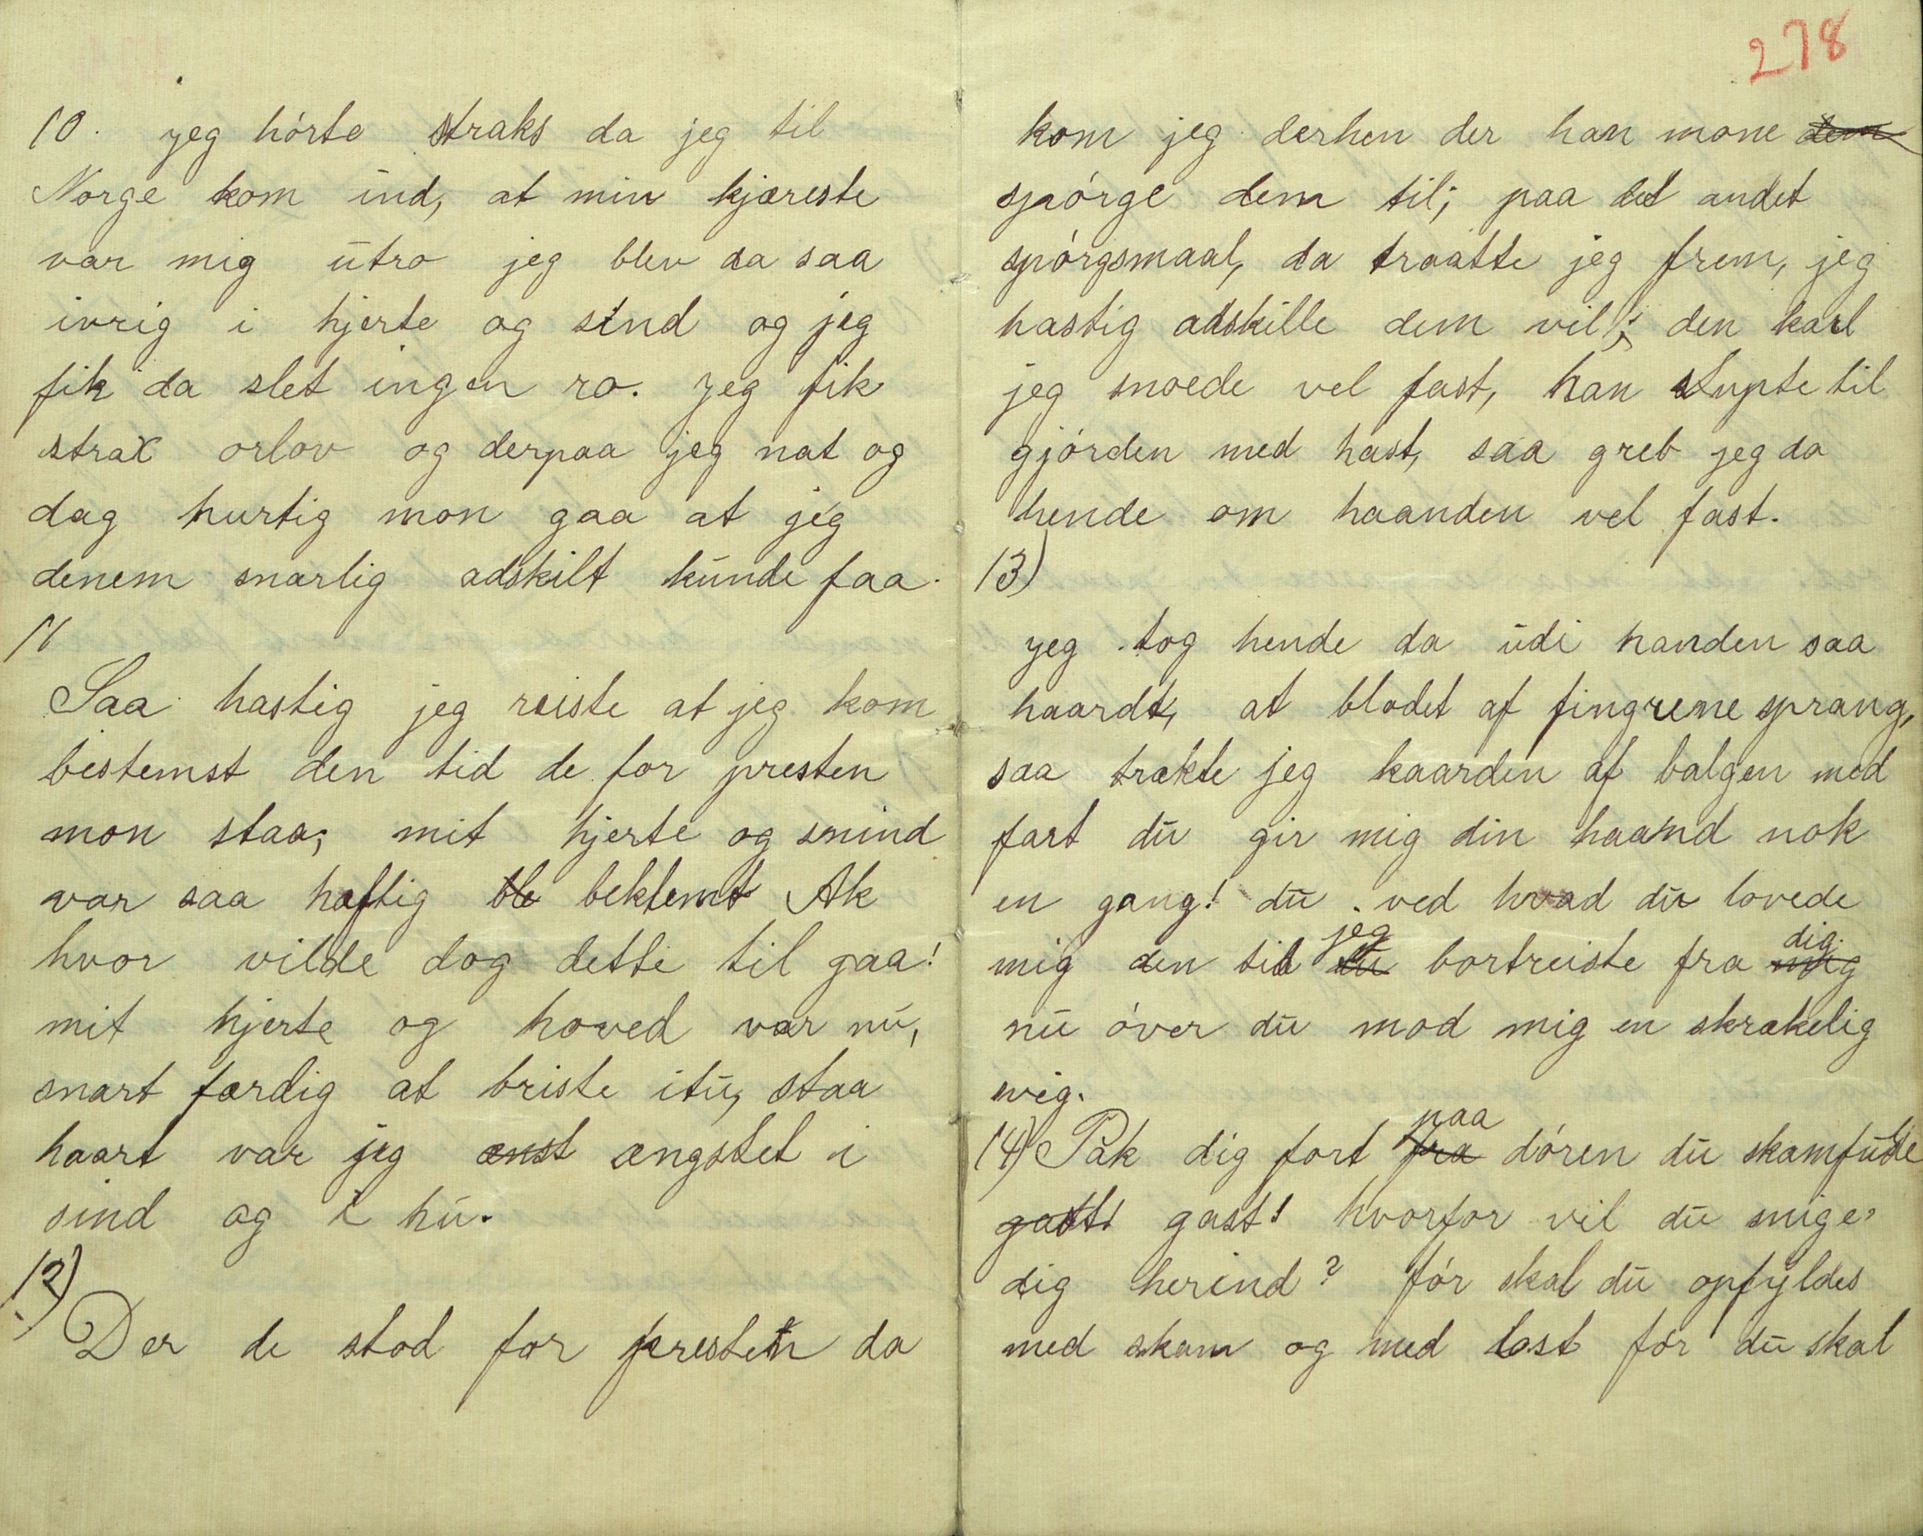 10. jeg hórte straks da jeg til
Norge kom ind, at min kjæreste
var mig utro jeg blev da saa
ivrig i hjerte og sind og jeg
fik da slet ingen ro. jeg fik
strax orlov og derpaa jeg nat og
dag hurtig mon gaa at jeg
denem snarlig adskilt kunde faa.
11
Saa hastig jeg reiste at jeg kom
bestemst den tid de for presten
mon staa; mit hjerte og smind
var saa hæftig ble beklemt Ak
hvor vilde dog dette til gaa!
mit hjerte og hoved var nu,
snart færdig at briste itu, staa
haart var jeg ænst ængstet i
sind og i hu.
12)
Der de stod for presten da
278
kom jeg derhen der han mone dem
spórge dem til; paa det andet
spórgsmaal, da traatte jeg frem, jeg
hastig adskille dem vil; den karl
jeg snoede vel fast, han stupte til
gjórden med hast, saa greb jeg da
hende om haanden vel fast.
13)
jeg tog hende da udi handen saa
haardt, at blodet af fingrene sprang,
saa trækte jeg kaarden af balgen med
fart du gir mig din haand nok
en gang! du ved hvad du lovede
mig den tid du jeg bortreiste fra mig dig.
nu óver du mod mig en skrækelig
svig.
14) Pak dig fort fra paa dóren du skamfulde
gast! gast! hvorfor vil du snige
dig herind? fór skal du opfyldes
med skam og med last fór du skal